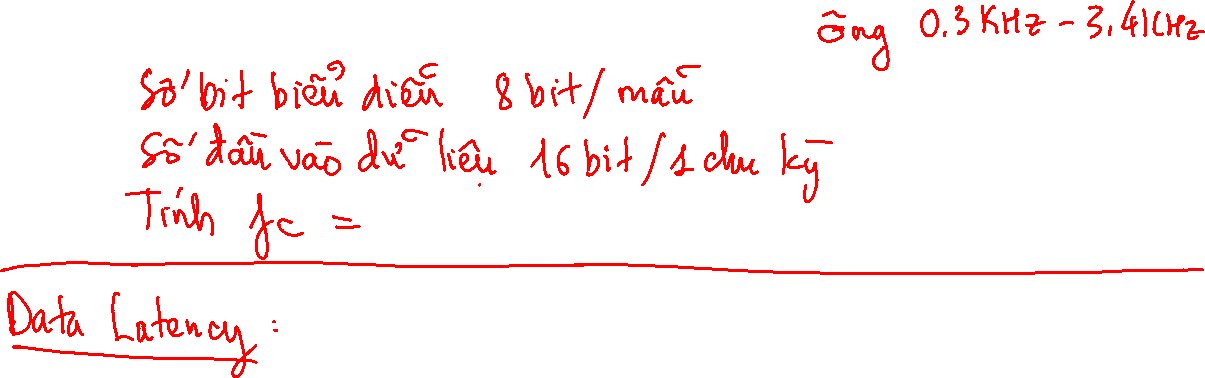 ông 0.3 KHz - 3.4 KHz
Số bit biểu diễn 8 bit/mẫu
Số đầu vào dữ liệu 16 bit/1 chu kỳ
Tính fc =
Data Latency: